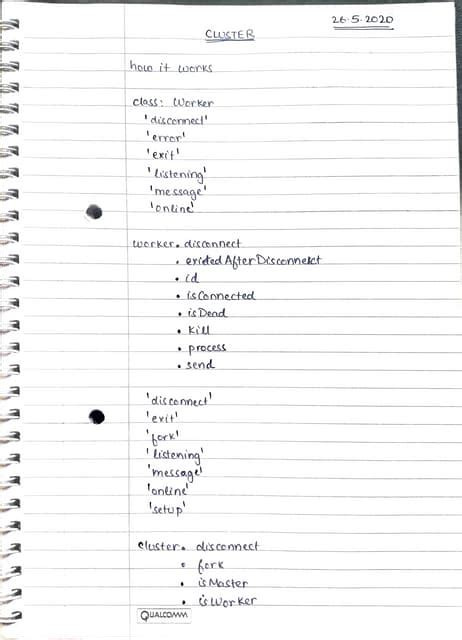 26.5.2020
CLUSTER
how it works
class: Worker
'disconnect'
'error'
'exit'
'listening'
'message'
'online'
worker. disconnect
• exitedAfterDisconnect
• id
• isConnected
• isDead
• kill
• process
• send
'disconnect'
'exit'
'fork'
'listening'
'message'
'online'
'setup'
cluster. disconnect
• fork
• isMaster
• isWorker
QUALCOMM